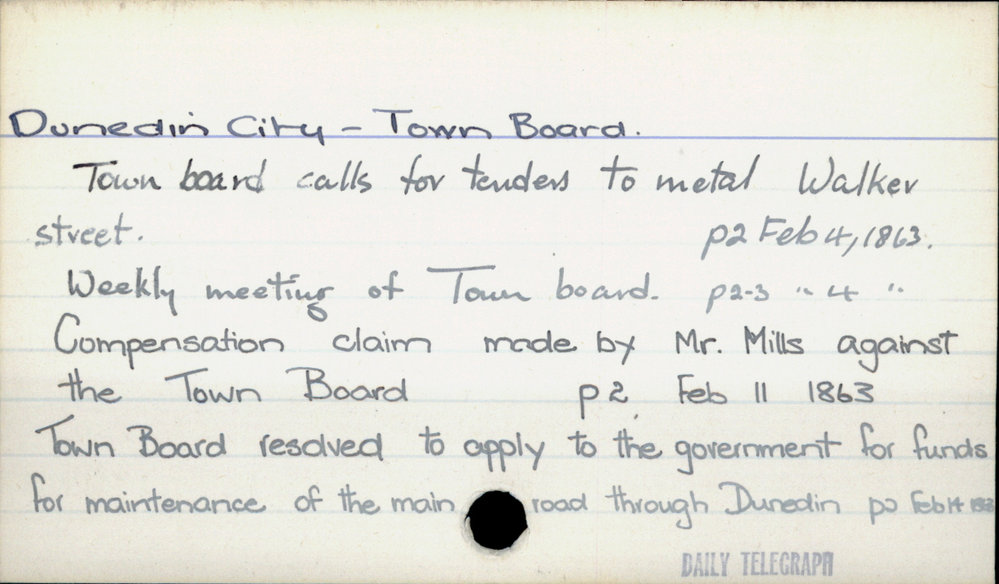 Dunedin City - Town Board.
Town board calls for tenders to metal Walker
street. p2 Feb 4, 1863.
Weekly meeting of Town board. p2-3 " 4 "
Compensation claim made by Mr. Mills against
the Town Board p2 Feb 11 1863
Town Board resolved to apply to the government for funds
for maintenance of the main road through Dunedin Feb 14
DAILY TELEGRAPH